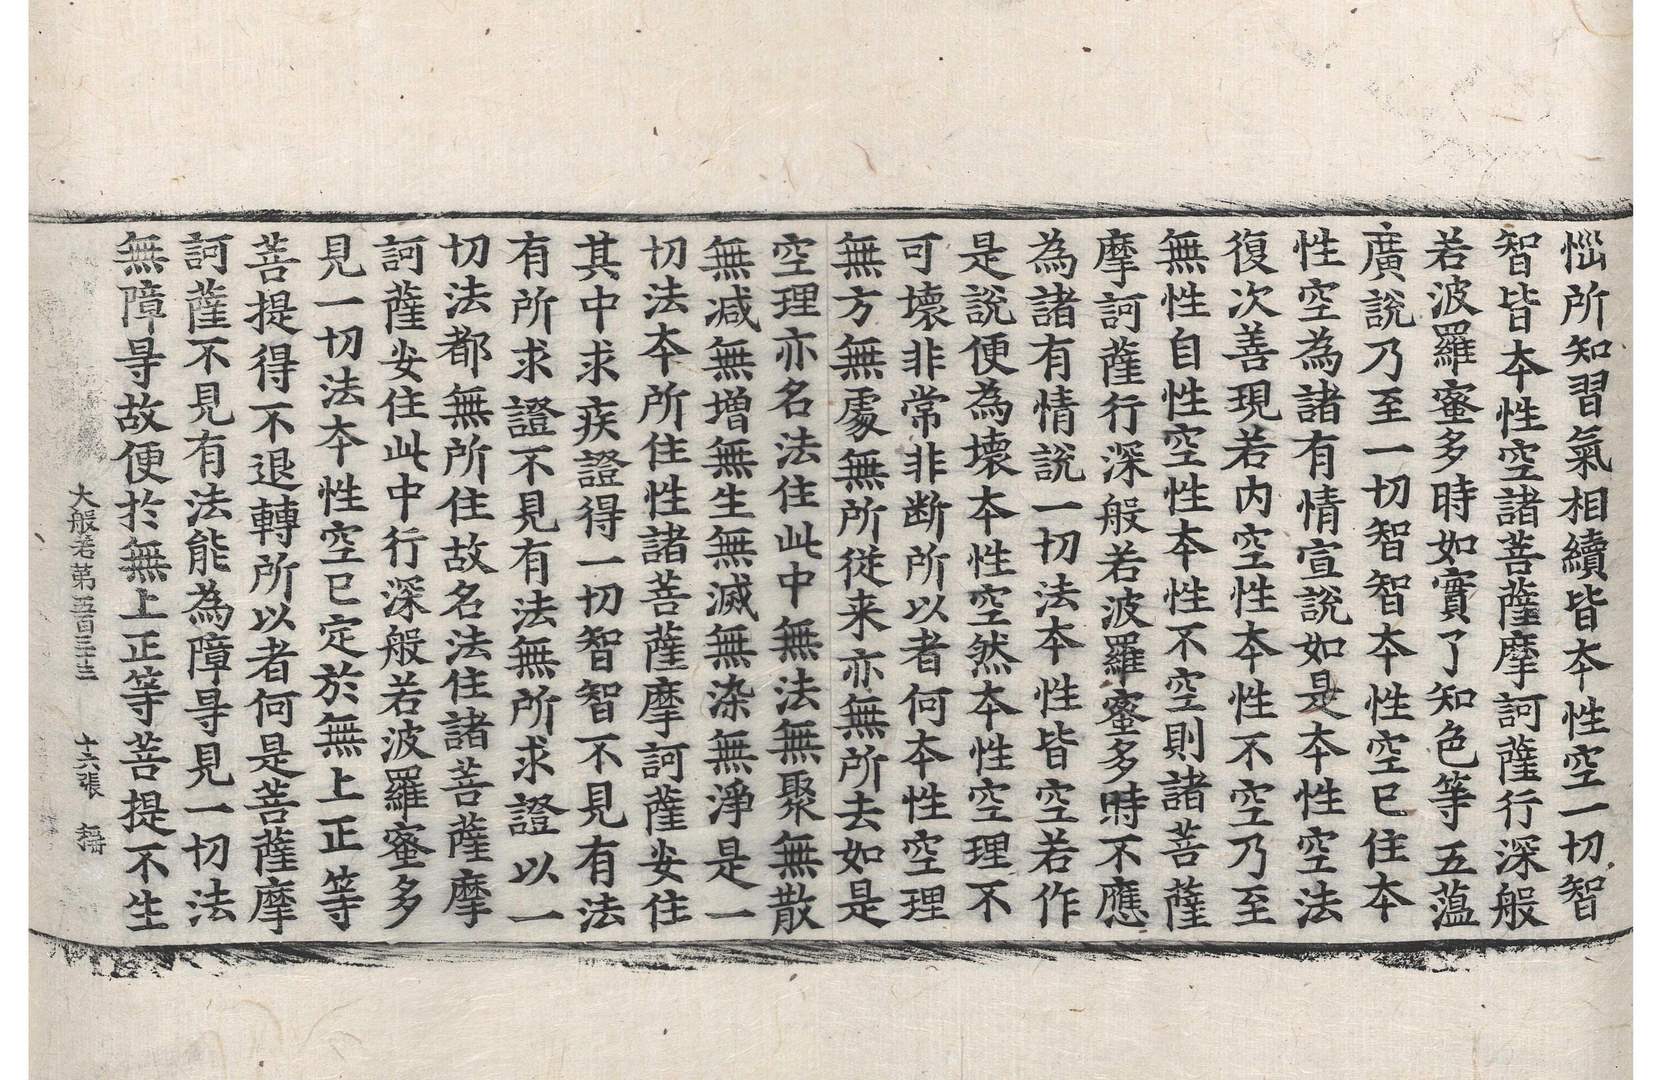 惱所知習氣相續皆本性空一切智
智皆本性空諸菩薩摩訶薩行深般
若波羅蜜多時如實了知色等五蘊
廣說乃至一切智智本性空已住本
性空為諸有情宣說如是本性空法
復次善現若內空性本性不空乃至
無性自性空性本性不空則諸菩薩
摩訶薩行深般若波羅蜜多時不應
為諸有情說一切法本性皆空若作
是說便為壞本性空然本性空理不
可壞非常非断所以者何本性空理
無方無處無所從来亦無所去如是
空理亦名法住此中無法無聚無散
無减無增無生無滅無染無淨是一
切法本所住性諸菩薩摩訶薩安住
其中求疾證得一切智智不見有法
有所求證不見有法無所求證以一
切法都無所住故名法住諸菩薩摩
訶薩安住此中行深般若波羅蜜多
見一切法本性空已定於無上正等
菩提得不退轉所以者何是菩薩摩
訶薩不見有法能為障㝵見一切法
無障㝵故便於無上正等菩提不生
大般若第五百三十三　十六張